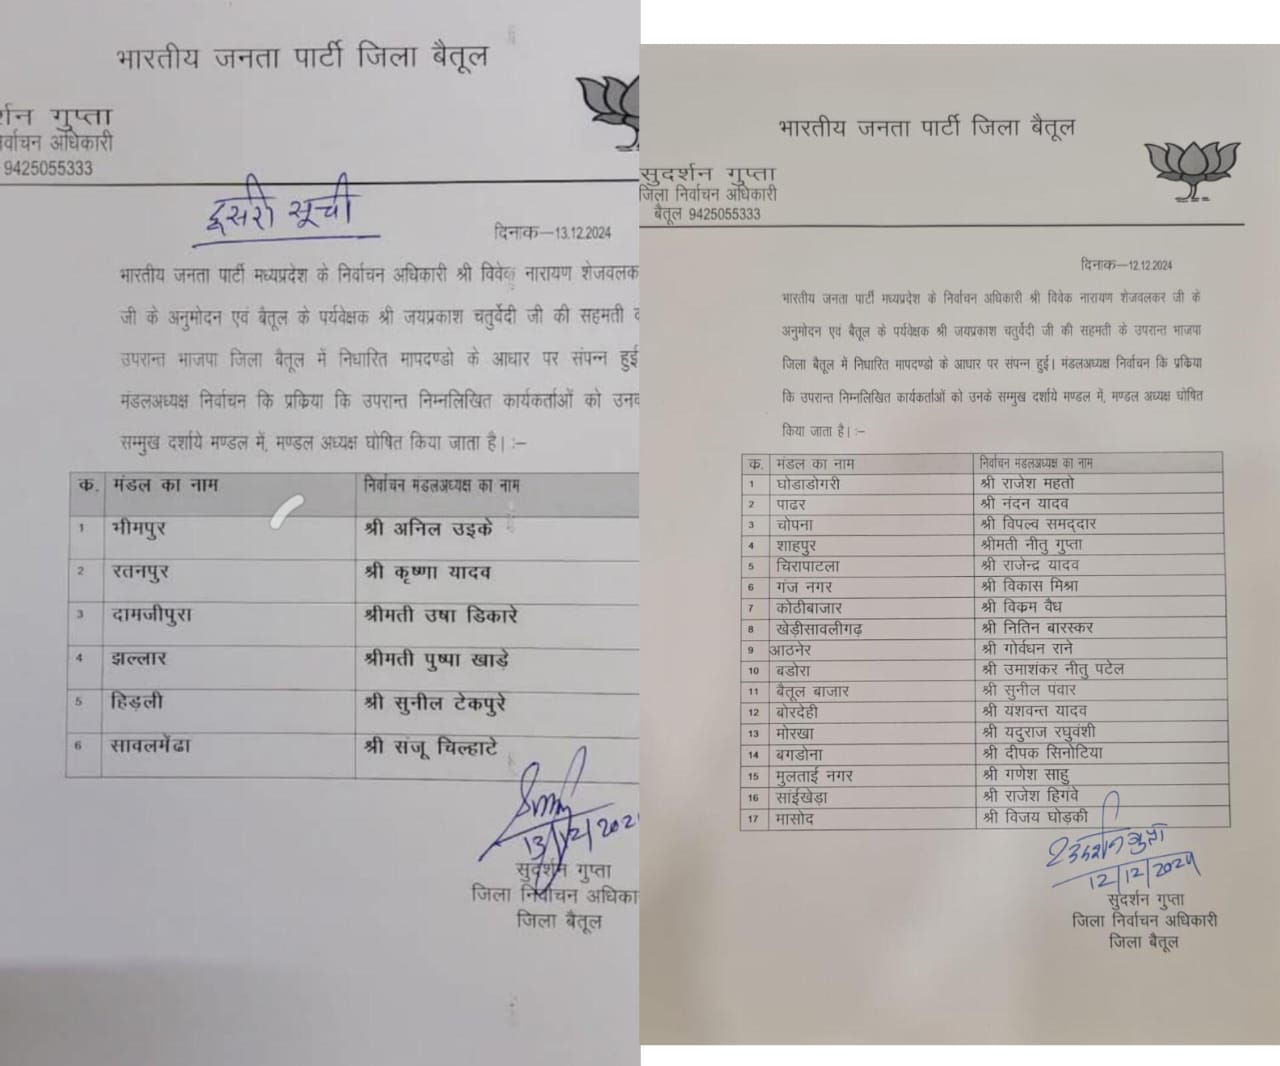 भारतीय जनता पार्टी जिला बैतूल
र्शन गुप्ता
र्वाचन अधिकारी
9425055333
दूसरी सूची
दिनाक—13.12.2024
भारतीय जनता पार्टी मध्यप्रदेश के निर्वाचन अधिकारी श्री विवेक नारायण शेजवलक
जी के अनुमोदन एवं बैतूल के पर्यवेक्षक श्री जयप्रकाश चतुर्वेदी जी की सहमती
उपरान्त भाजपा जिला बैतूल में निधारित मापदण्डो के आधार पर संपन्न हुई
मंडलअध्यक्ष निर्वाचन कि प्रकिया कि उपरान्त निम्नलिखित कार्यकर्ताओं को उनक
सम्मुख दर्शाये मण्डल में, मण्डल अध्यक्ष घोषित किया जाता है। :–
क. मंडल का नाम निर्वाचन मंडलअध्यक्ष का नाम
1 भीमपुर श्री अनिल उइके
2 रतनपुर श्री कृष्णा यादव
3 दामजीपुरा श्रीमती उषा डिकारे
4 झल्लार श्रीमती पुष्पा खाड़े
5 हिड़ली श्री सुनील टेकपुरे
6 सावलमेंढा श्री संजू चिल्हाटे
13/12/202
सुदर्शन गुप्ता
जिला निर्वाचन अधिका
जिला बैतूल
भारतीय जनता पार्टी जिला बैतूल
सुदर्शन गुप्ता
जिला निर्वाचन अधिकारी
बैतूल 9425055333
दिनाक—12.12.2024
भारतीय जनता पार्टी मध्यप्रदेश के निर्वाचन अधिकारी श्री विवेक नारायण शेजवलकर जी के
अनुमोदन एवं बैतूल के पर्यवेक्षक श्री जयप्रकाश चतुर्वेदी जी की सहमती के उपरान्त भाजपा
जिला बैतूल में निधारित मापदण्डो के आधार पर संपन्न हुई। मंडलअध्यक्ष निर्वाचन कि प्रकिया
कि उपरान्त निम्नलिखित कार्यकर्ताओं को उनके सम्मुख दर्शाये मण्डल में, मण्डल अध्यक्ष घोषित
किया जाता है। :–
क. मंडल का नाम निर्वाचन मंडलअध्यक्ष का नाम
1 घोडाडोगरी श्री राजेश महतो
2 पाढर श्री नंदन यादव
3 चोपना श्री विपल्व समद्दार
4 शाहपुर श्रीमती नीतु गुप्ता
5 चिरापाटला श्री राजेन्द्र यादव
6 गंज नगर श्री विकास मिश्रा
7 कोठीबाजार श्री विक्रम वैध
8 खेड़ीसावलीगढ़ श्री नितिन बारस्कर
9 आठनेर श्री गोर्वधन राने
10 बडोरा श्री उमाशंकर नीतु पटेल
11 बैतूल बाजार श्री सुनील पवार
12 बोरदेही श्री यशवन्त यादव
13 मोरखा श्री यदुराज रघुवंशी
14 बगडोना श्री दीपक सिनोटिया
15 मुलताई नगर श्री गणेश साहु
16 सांईखेड़ा श्री राजेश हिगंवे
17 मासोद श्री विजय घोड़की
सुदर्शन गुप्ता
12/12/2024
सुदर्शन गुप्ता
जिला निर्वाचन अधिकारी
जिला बैतूल